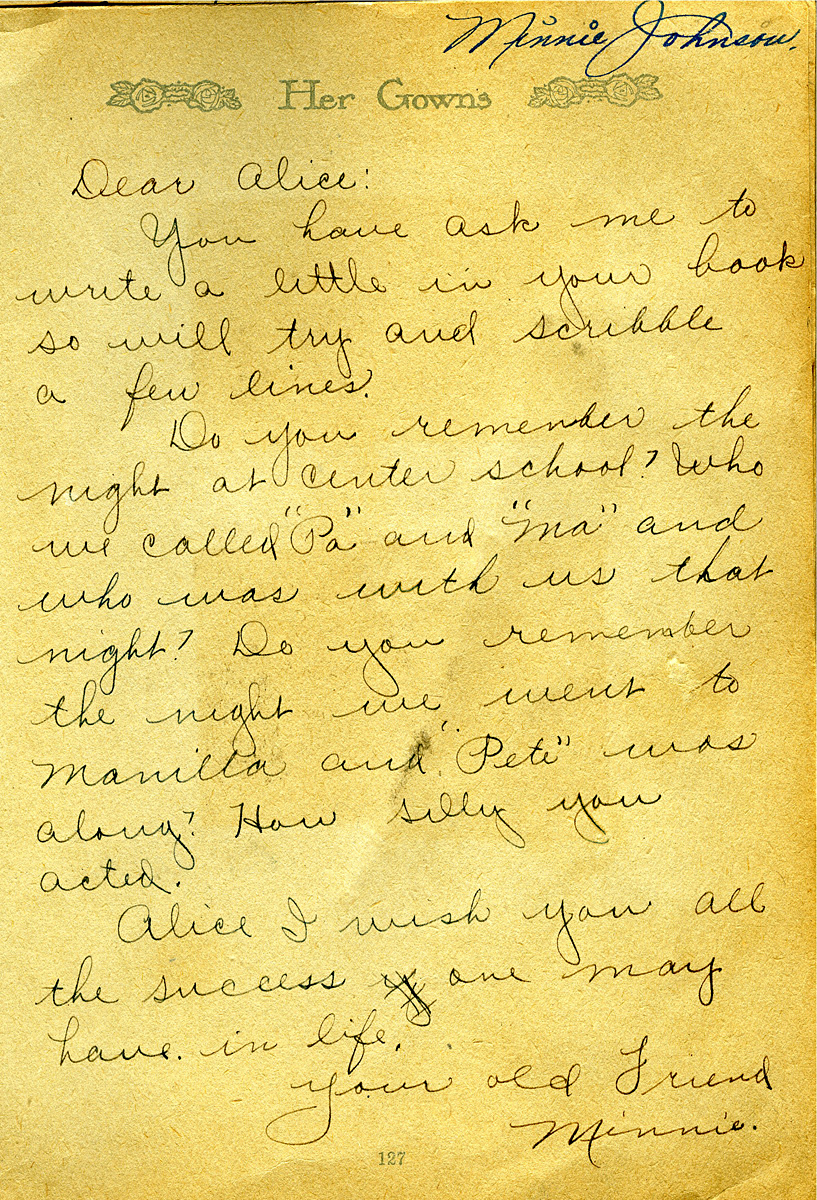 Minnie Johnson.
Her Gowns
Dear Alice:
You have ask me to
write a little in your book
so will try and scribble
a few lines.
Do you remember the
night at center school? Who
we called "Pa" and "Ma" and
who was with us that
night? Do you remember
the night we went to
Manilla and "Pete" was
along? How silly you
acted.
Alice I wish you all
the success one may
have. in life.
your old Friend
Minnie.
127